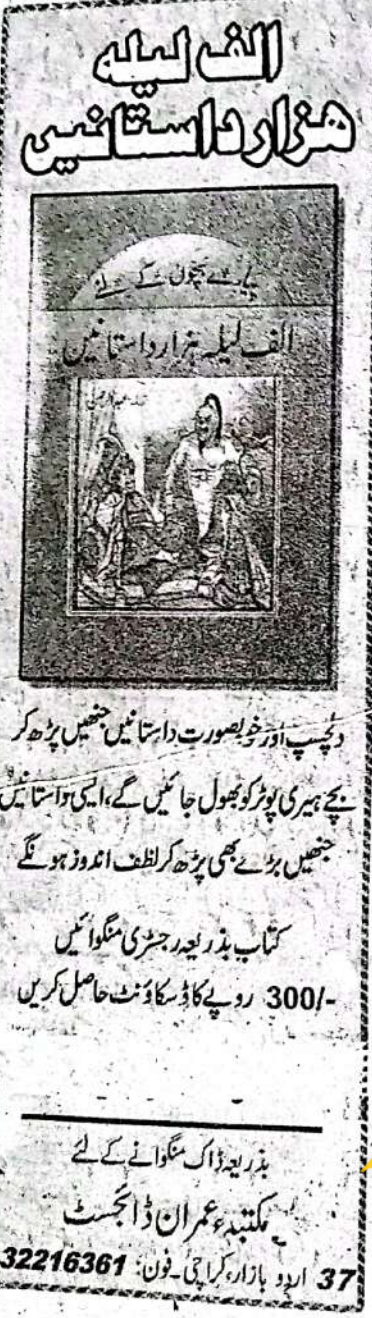 الف لیلہ
ھزار داستانیں
پیارے بچوں کے لئے
الف لیلہ ہزار داستانیں
دلچسپ اور خوبصورت داستانیں جنھیں پڑھ کر
بچے ہیری پوٹر کو بھول جائیں گے، ایسی داستانیں
جنھیں بڑے بھی پڑھ کر لطف اندوز ہونگے
کتاب بذریعہ رجسٹری منگوائیں
300/- روپے کا ڈسکاؤنٹ حاصل کریں
بذریعہ ڈاک منگوانے کے لئے
مکتبہء عمران ڈائجسٹ
37 اردو بازار، کراچی۔ فون: 32216361